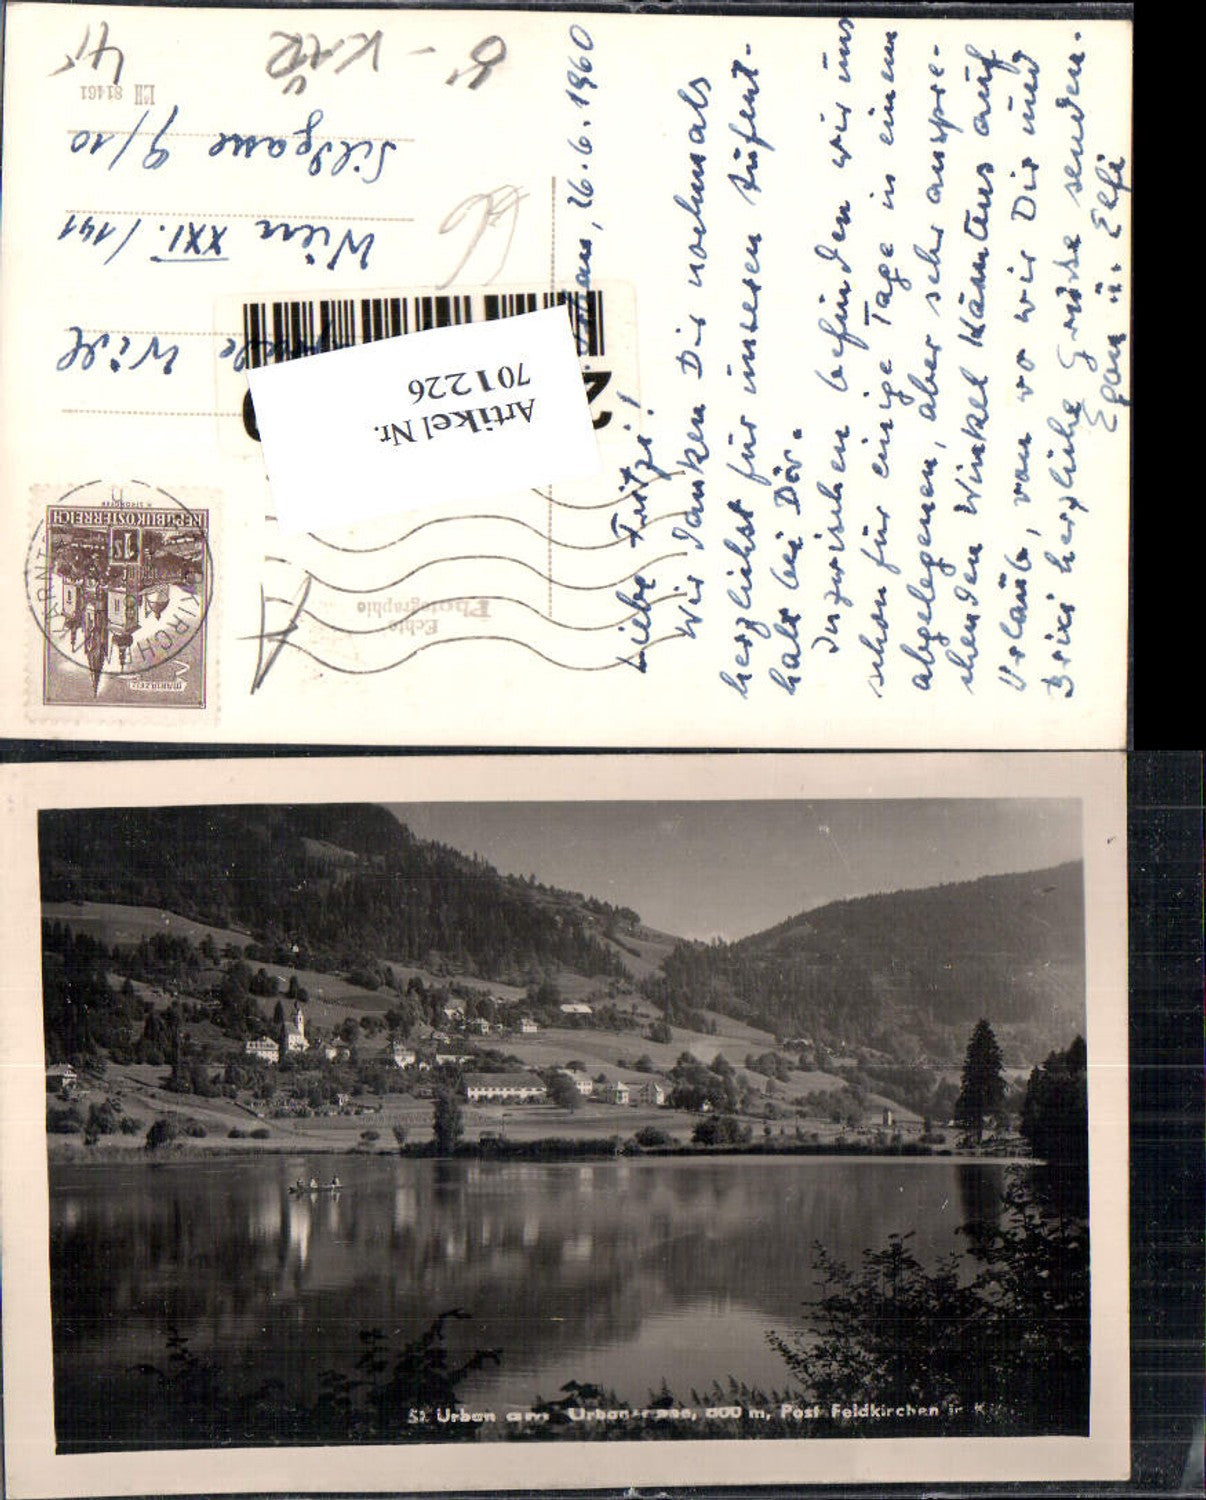 Urban, 26.6.1960
Liebe Fritzi!
Wir danken Dir nochmals
herzlichst für unseren Aufent-
halt bei Dir.
Inzwischen befinden wir uns
schon für einige Tage in einem
abgelegenen, aber sehr anspre-
chenden Winkel Kärntens auf
Urlaub, von wo wir Dir und
Brixi herzliche Grüße senden.
Egon u. Elfi
Widl
Wien XXI./141
9/10
Ö - KÄR
45
81461
Echte
Photographie
REPUBLIK ÖSTERREICH
1S
MARIAZELL
Artikel Nr.
701226
St. Urban am Urbansee, 800 m, Post Feldkirchen in